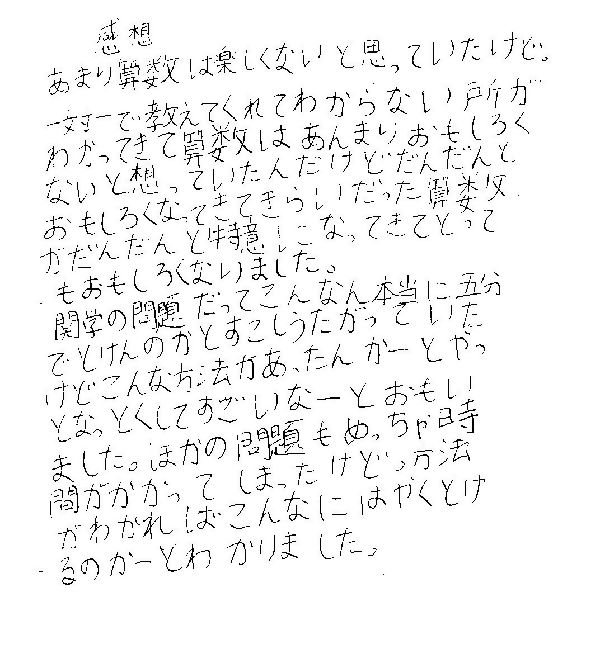 感想
あまり算数は楽しくないと思っていたけど。
一対一で教えてくれてわからない所が
わかってきて算数はあんまりおもしろく
ないと想っていたんだけどだんだんと
おもしろくなってきてきらいだった算数
がだんだんと特意になってきてとって
もおもしろくないました。
関学の問題だってこんなん本当に五分
でとけんのかとすこしうたがっていた
けどこんな方法があ、たんかーとやっ
となっとくしてすごいなーとおもい
ました。ほかの問題もめっちゃ時
間がかかってしまったけどっ方法
がわかればこんなにはやくとけ
るのかーとわかりました。